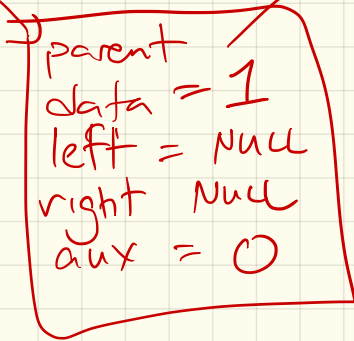 parent
data = 1
left = NULL
right NULL
aux = 0